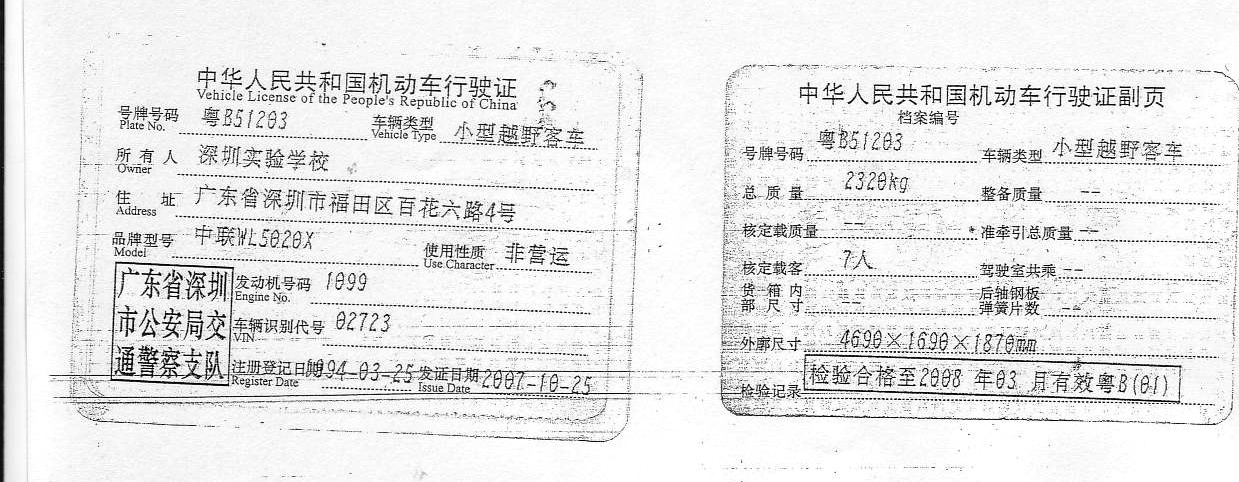 中华人民共和国机动车行驶证
Vehicle License of the People's Republic of China
号牌号码 粤B51203 车辆类型 小型越野客车
Plate No. Vehicle Type
所有人 深圳实验学校
Owner
住址 广东省深圳市福田区百花六路4号
Address
品牌型号 中联WL5020X 使用性质 非营运
Model Use Character
广东省深圳
市公安局交
通警察支队
发动机号码 1099
Engine No.
车辆识别代号 02723
VIN
注册登记日期 1994-03-25 发证日期 2007-10-25
Register Date Issue Date
中华人民共和国机动车行驶证副页
档案编号
号牌号码 粤B51203 车辆类型 小型越野客车
总质量 2320kg 整备质量 --
核定载质量 -- 准牵引总质量 --
核定载客 7人 驾驶室共乘 --
货箱内 后轴钢板
部尺寸 -- 弹簧片数 --
外廓尺寸 4690×1690×1870mm
检验记录 检验合格至2008年03月有效粤B(01)